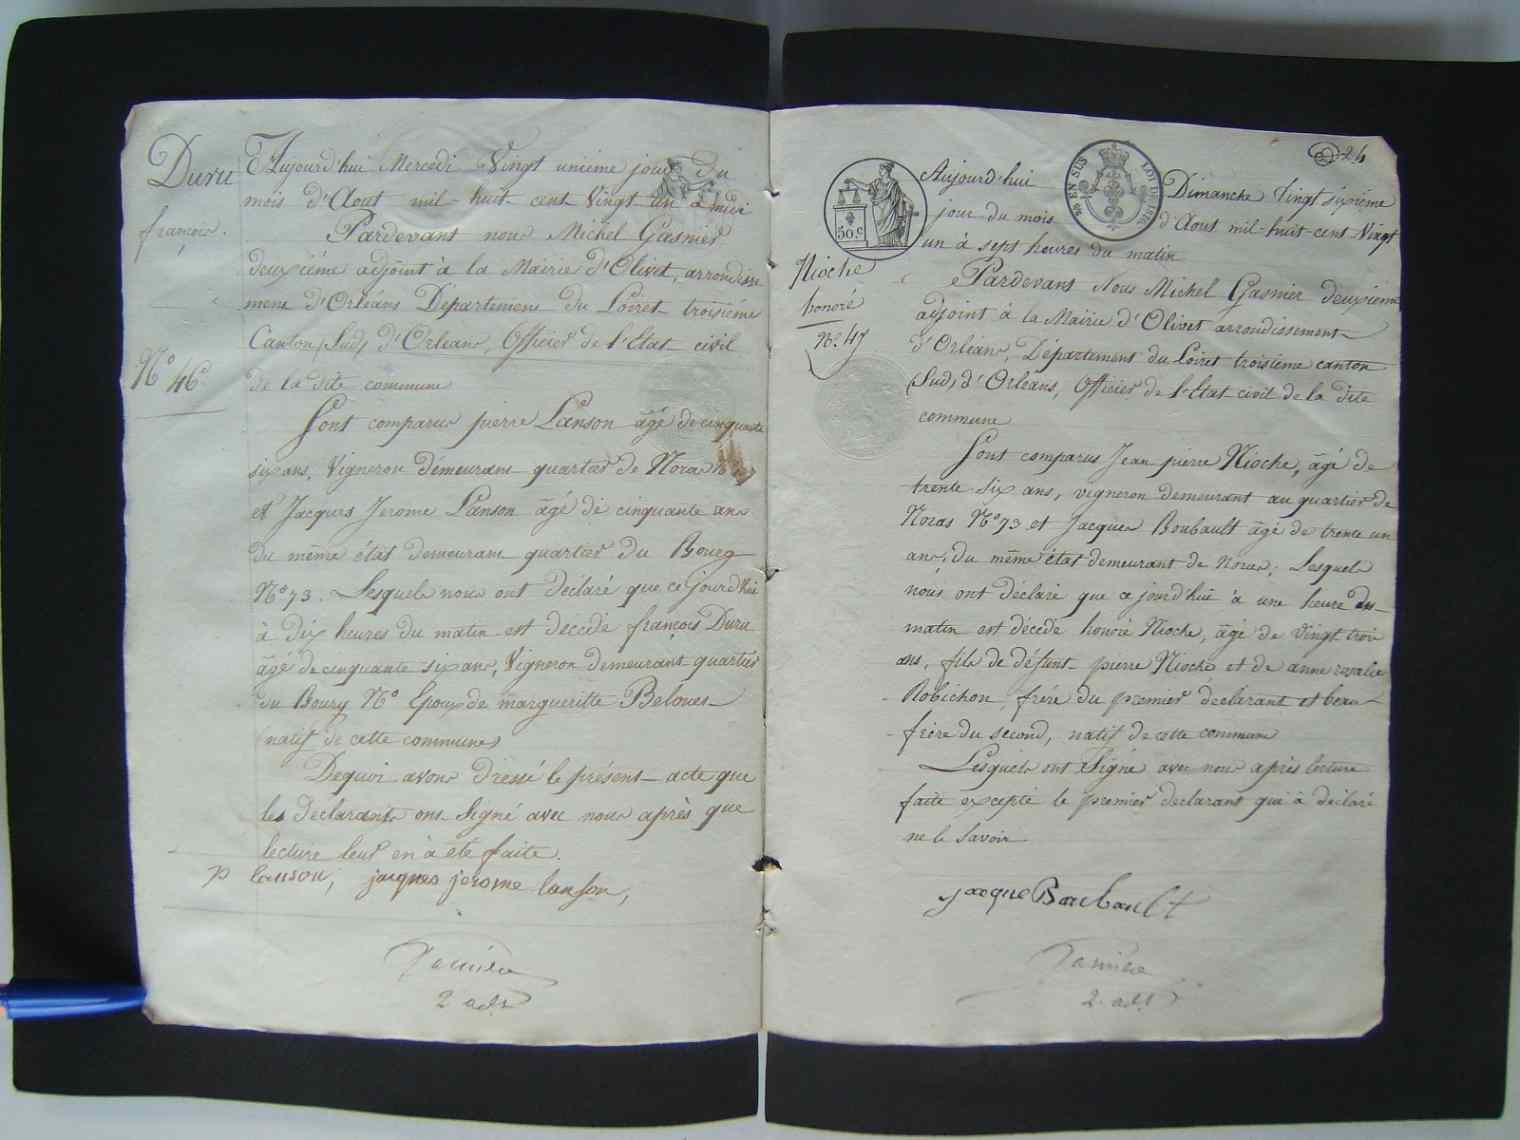 Duru
françois.
N.° 46.
Aujourd'hui Mercedi Vingt unième jour du
mois d'Aout mil-huit-cent Vingt un à midi
Pardevant nous Michel Gasnier
deuxième adjoint à la Mairie d'Olivet, arrondisse
ment d'Orléans Département du Loiret troisième
Canton (Sud) d'Orléans, Officier de l'État-civil
de la dite commune
Sont comparus pierre Lanson âgé de cinquante
six ans, Vigneron démeurant quartier de Noras N°
et Jacques Jerome Lanson âgé de cinquante ans
du même état demeurant quartier du Bourg
N° 73. Lesquels nous ont déclaré que ce jourd'hui
à dix heures du matin est décédé françois Duru
âgé de cinquante six ans, Vigneron demeurant quartier
du Bourg N° Epoux de margueritte Beloues
natif de cette commune
Dequoi avons dressé le présent acte que
les Declarants ont signé avec nous après que
lecture leur en à été faite.
p lanson, jacques jerome lanson,
2 adj
24
50 C
EN SUS
LOI DE 1816
Nioche
honoré
N.° 47
Aujourd'hui Dimanche Vingt sixième
jour du mois d'Aout mil-huit-cent Vingt
un à sept heures du matin
Pardevant Nous Michel Gasnier deuxième
adjoint à la Mairie d'Olivet arrondissement
d'Orléans, Département du Loiret troisième canton
(Sud) d'Orléans, Officier de l'État civil de la dite
commune
Sont comparus Jean pierre Nioche, âgé de
trente six ans, vigneron demeurant au quartier de
Noras N° 73 et Jacques Boubault âgé de trente un
ans, du même état demeurant de Noras; Lesquels
nous ont déclaré que ce jourd'hui à une heure du
matin est décédé honoré Nioche, âgé de Vingt trois
ans, fils de défunt pierre Nioche et de anne rosalie
Robichon, frère du premier déclarant et beau
frère du second, natif de cette commune
Lesquels ont Signé avec nous après lecture
faite excepté le premier declarant qui à déclaré
ne le Savoir
jacque Boubault
2 adj